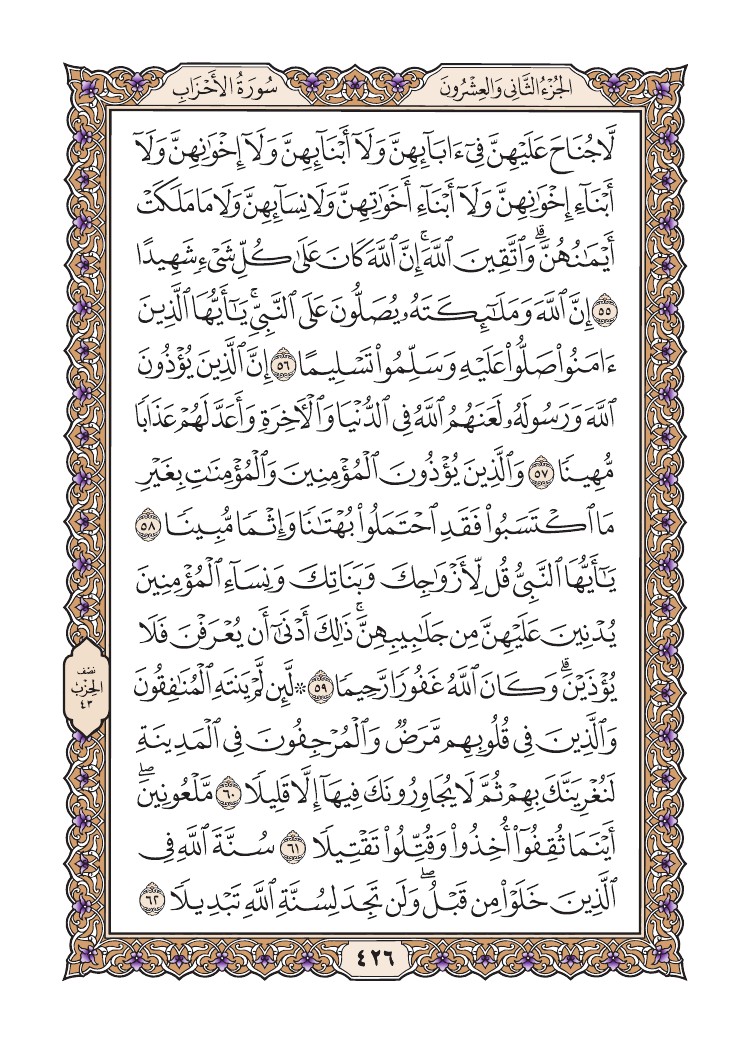 سُورَةُ الأَحْزَابِ
الجُزْءُ الثَّانِي وَالعِشْرُونَ
لَّا جُنَاحَ عَلَيْهِنَّ فِيٓ ءَابَآئِهِنَّ وَلَآ أَبْنَآئِهِنَّ وَلَآ إِخْوَٰنِهِنَّ وَلَآ
أَبْنَآءِ إِخْوَٰنِهِنَّ وَلَآ أَبْنَآءِ أَخَوَٰتِهِنَّ وَلَا نِسَآئِهِنَّ وَلَا مَا مَلَكَتْ
أَيْمَٰنُهُنَّۗ وَٱتَّقِينَ ٱللَّهَۚ إِنَّ ٱللَّهَ كَانَ عَلَىٰ كُلِّ شَيْءٖ شَهِيدًا
٥٥ إِنَّ ٱللَّهَ وَمَلَٰٓئِكَتَهُۥ يُصَلُّونَ عَلَى ٱلنَّبِيِّۚ يَٰٓأَيُّهَا ٱلَّذِينَ
ءَامَنُواْ صَلُّواْ عَلَيْهِ وَسَلِّمُواْ تَسْلِيمًا ٥٦ إِنَّ ٱلَّذِينَ يُؤْذُونَ
ٱللَّهَ وَرَسُولَهُۥ لَعَنَهُمُ ٱللَّهُ فِي ٱلدُّنْيَا وَٱلْأٓخِرَةِ وَأَعَدَّ لَهُمْ عَذَابٗا
مُّهِينٗا ٥٧ وَٱلَّذِينَ يُؤْذُونَ ٱلْمُؤْمِنِينَ وَٱلْمُؤْمِنَٰتِ بِغَيْرِ
مَا ٱكْتَسَبُواْ فَقَدِ ٱحْتَمَلُواْ بُهْتَٰنٗا وَإِثْمٗا مُّبِينٗا ٥٨
يَٰٓأَيُّهَا ٱلنَّبِيُّ قُل لِّأَزْوَٰجِكَ وَبَنَاتِكَ وَنِسَآءِ ٱلْمُؤْمِنِينَ
يُدْنِينَ عَلَيْهِنَّ مِن جَلَٰبِيبِهِنَّۚ ذَٰلِكَ أَدْنَىٰٓ أَن يُعْرَفْنَ فَلَا
يُؤْذَيْنَۗ وَكَانَ ٱللَّهُ غَفُورٗا رَّحِيمٗا ٥٩ ۞ لَّئِن لَّمْ يَنتَهِ ٱلْمُنَٰفِقُونَ
وَٱلَّذِينَ فِي قُلُوبِهِم مَّرَضٞ وَٱلْمُرْجِفُونَ فِي ٱلْمَدِينَةِ
لَنُغْرِيَنَّكَ بِهِمْ ثُمَّ لَا يُجَاوِرُونَكَ فِيهَآ إِلَّا قَلِيلٗا ٦٠ مَّلْعُونِينَۖ
أَيْنَمَا ثُقِفُوٓاْ أُخِذُواْ وَقُتِّلُواْ تَقْتِيلٗا ٦١ سُنَّةَ ٱللَّهِ فِي
ٱلَّذِينَ خَلَوْاْ مِن قَبْلُۖ وَلَن تَجِدَ لِسُنَّةِ ٱللَّهِ تَبْدِيلٗا ٦٢
نصف
الحزب
٤٣
٤٢٦